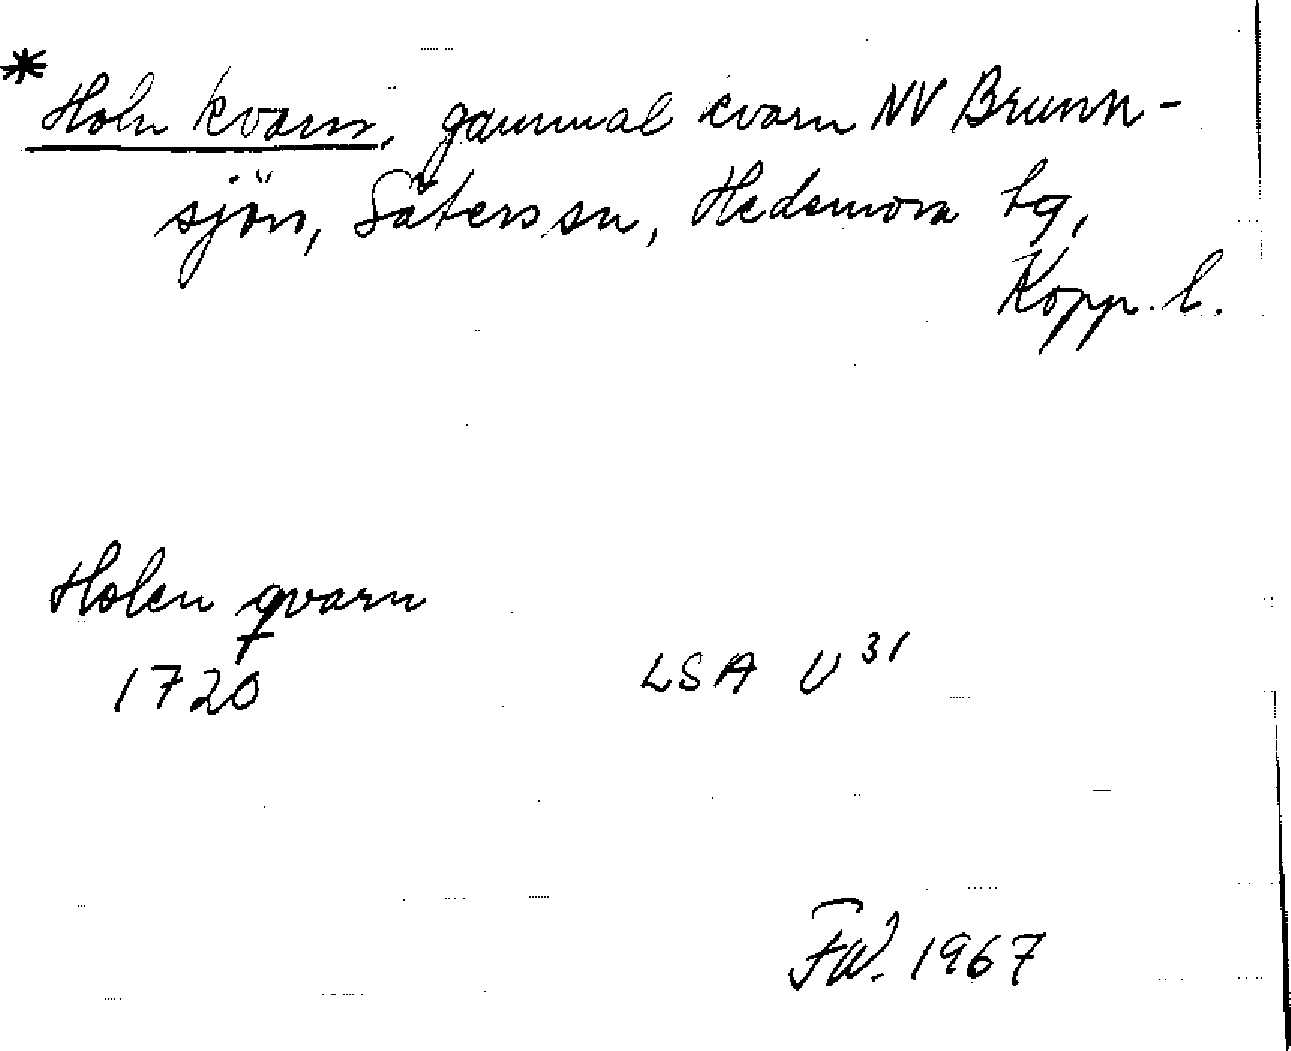 * Holn kvarn, gammal kvarn NV Brunn-
sjön, Säters sn, Hedemora tg,
Kopp. l.
Holen qvarn
1720 LSA U 31
F.W. 1967